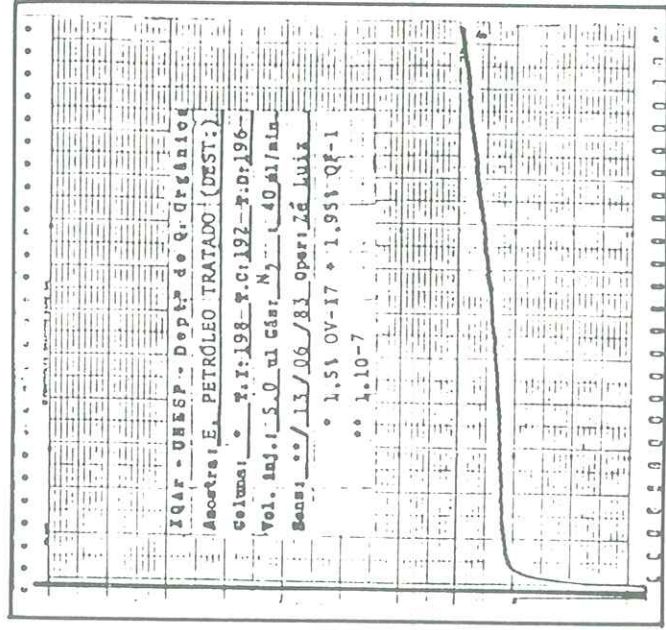 IQAr - UNESP - Dept.º de Q. Orgânica
Amostra: E. PETRÓLEO TRATADO (DEST:)
Coluna: * T.I: 198 T.C: 192 T.D: 196
Vol. inj.: 5.0 ul Gás: N2 : 40 ml/min
Sens: **/ 13/06 /83 Oper: Zé Luiz
* 1,5% OV-17 + 1,95% QF-1
** 1.10-7